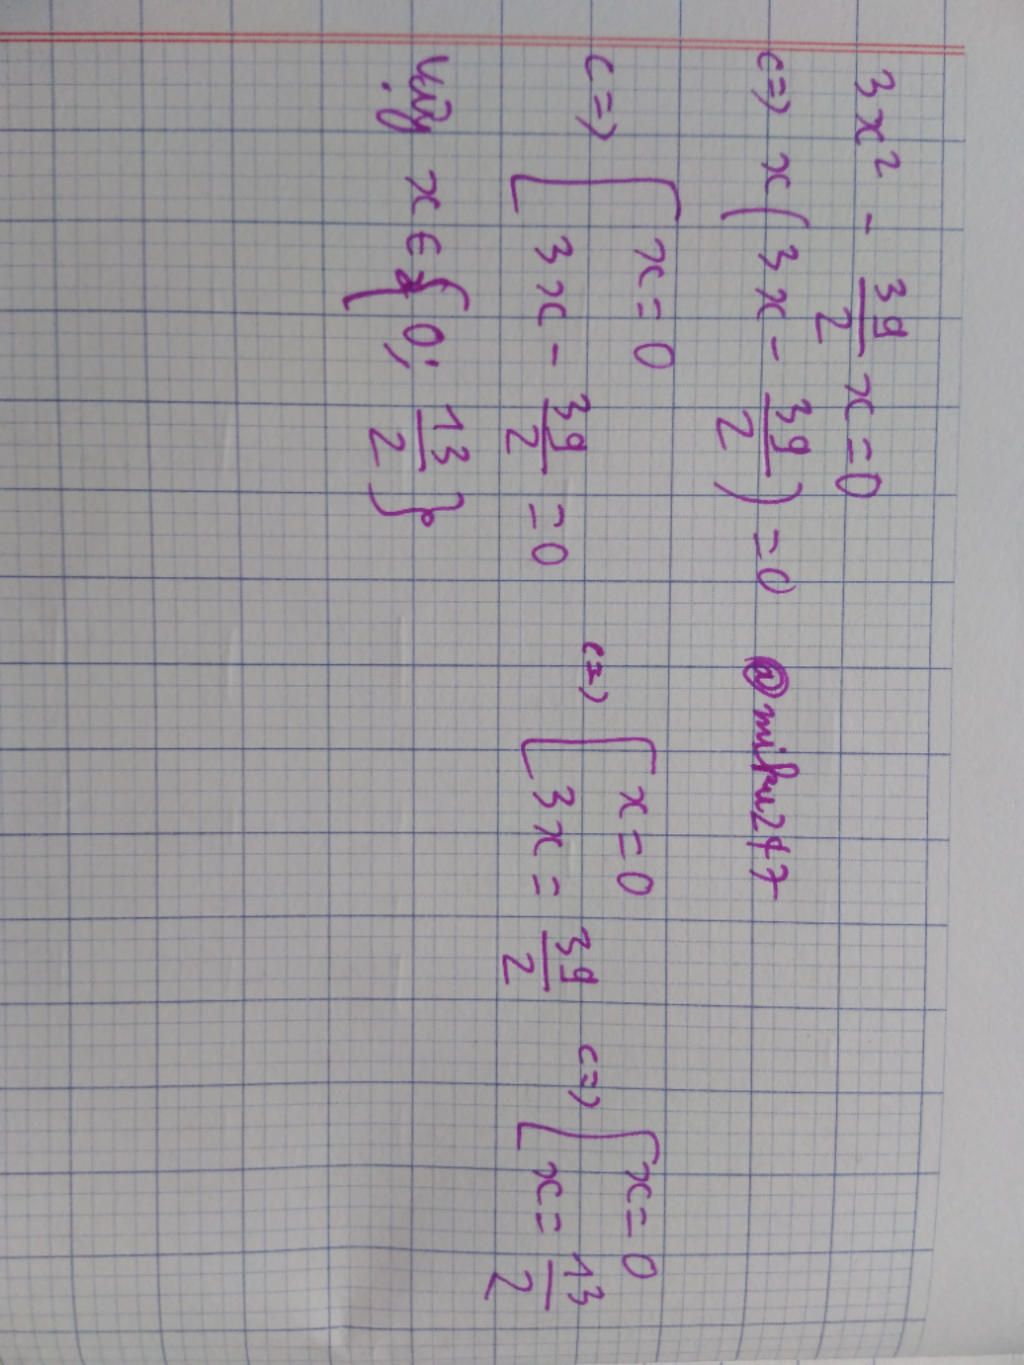 3x² - 39/2 x = 0
<=> x(3x - 39/2) = 0 @miku247
<=> [ x = 0 <=> [ x = 0 <=> [ x = 0
3x - 39/2 = 0 3x = 39/2 x = 13/2
Vậy x ∈ { 0; 13/2 }